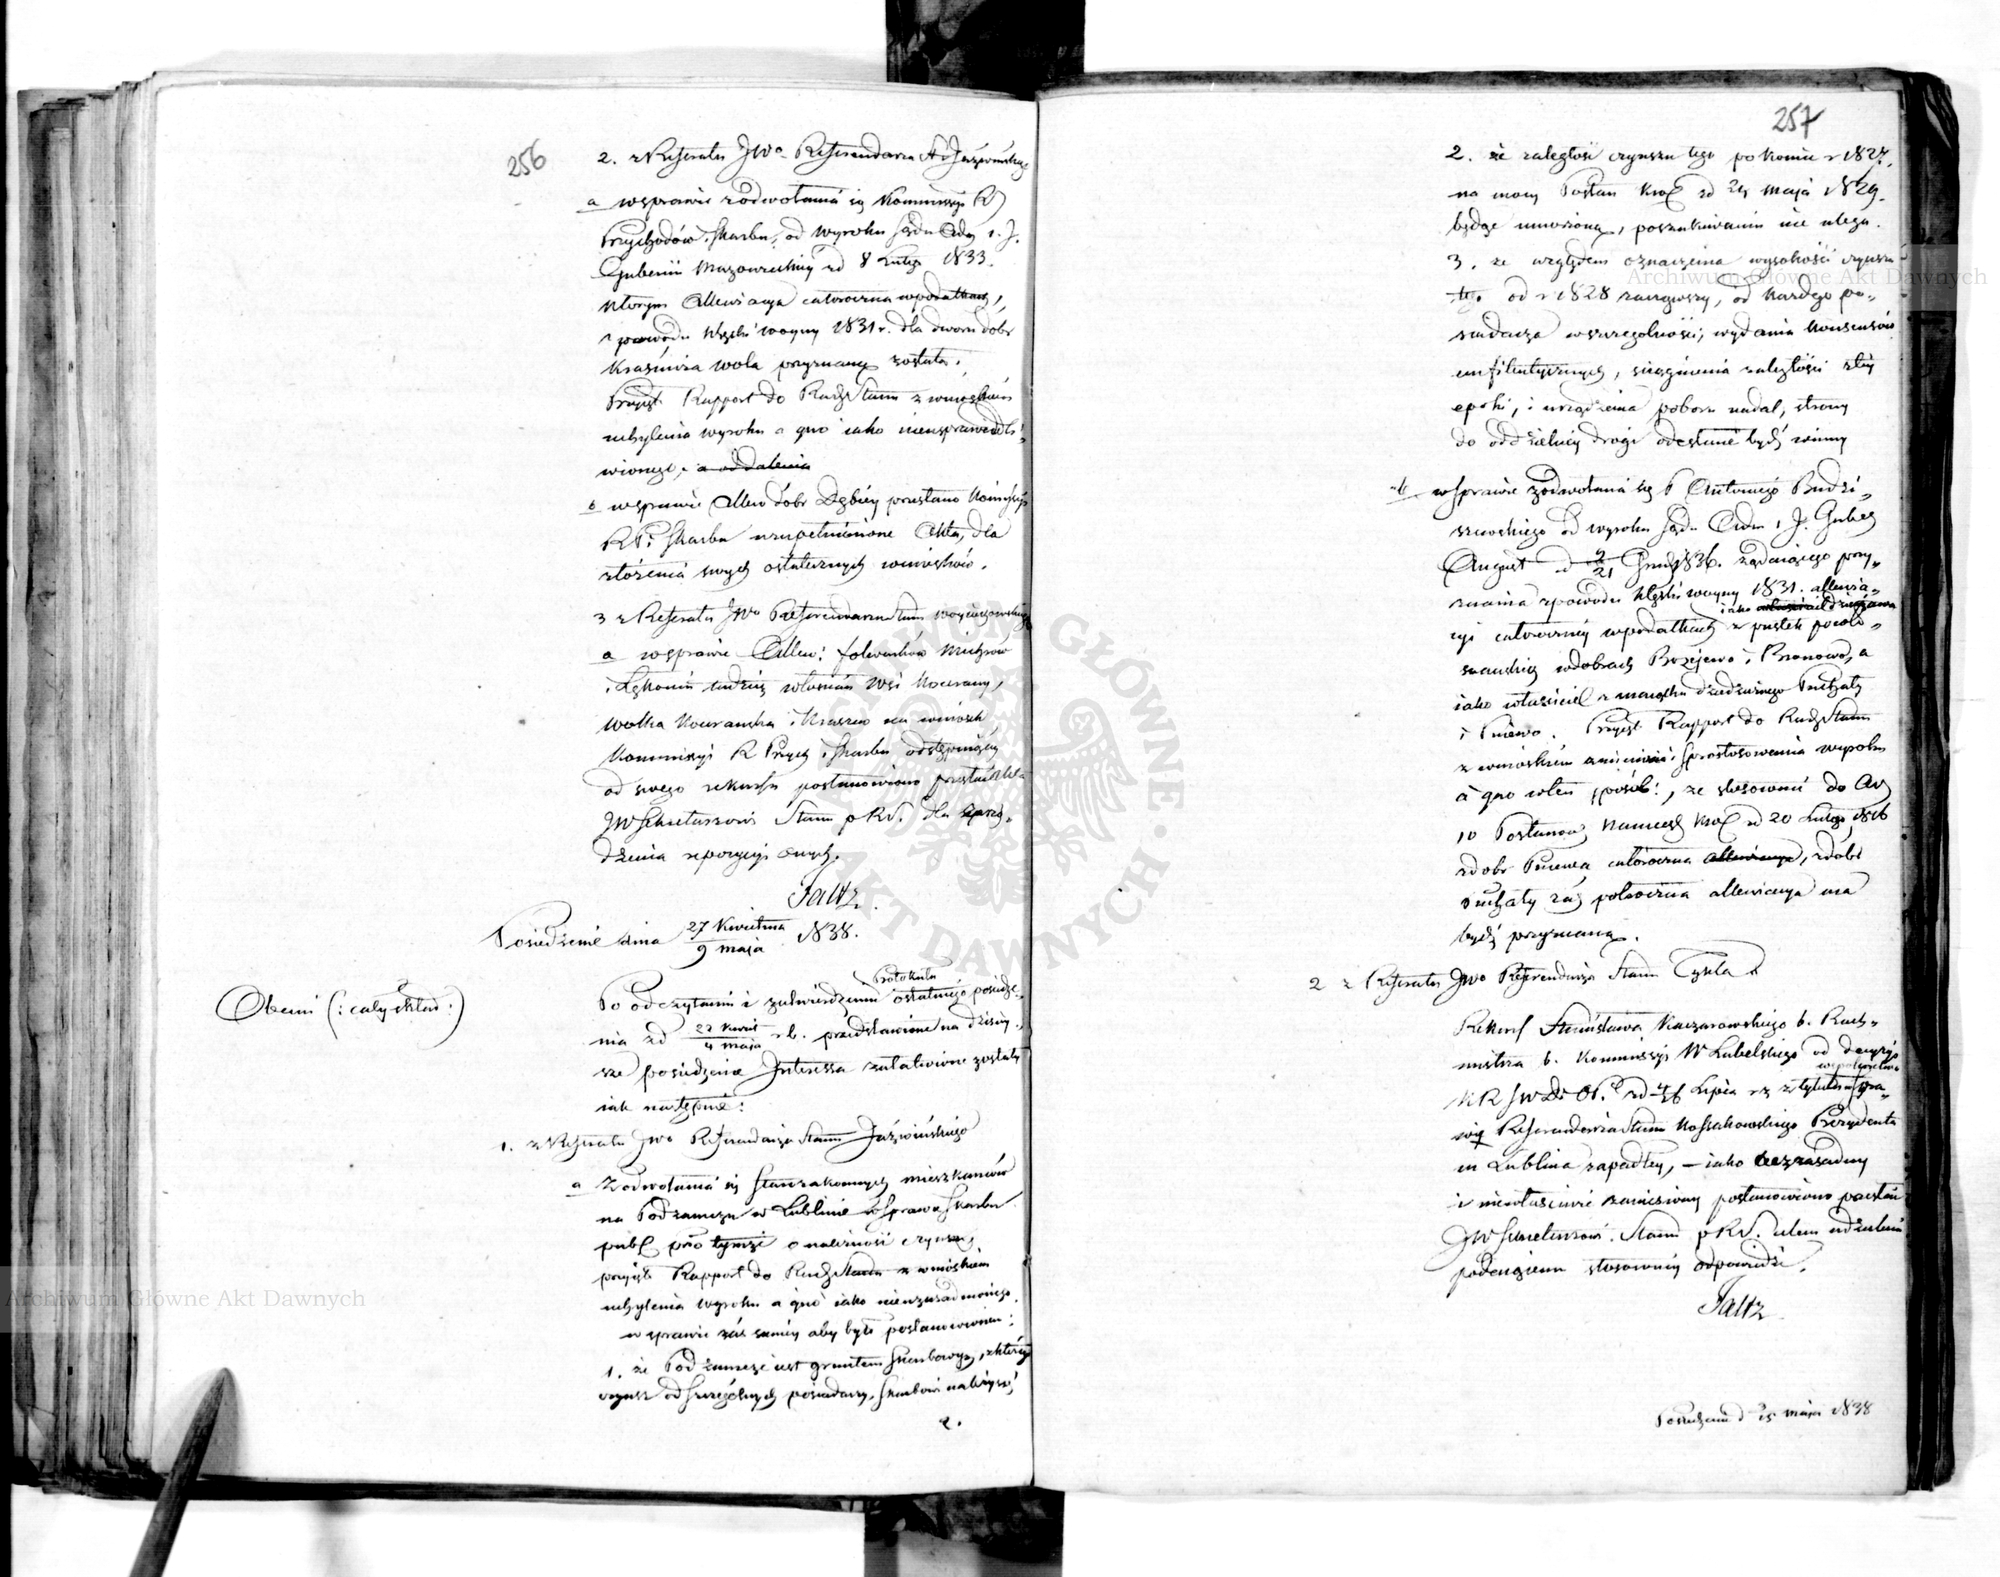 256
2. z Referatu JWo Referendarza St Jaźwińskiego
a w sprawie z odwołania się Kommissyi R
Przychodów i Skarbu, od wyroku Sądu Adm 1. J.
Gubernii Mazowieckiej zd 8 Lutego 1833.
którym Allewiacya całoroczna w podatkach,
z powodu klęski woyny 1831 r. dla dworu dóbr
Wola przyznaną została.
Przyięto Rapport do Rady Stanu z wnioskiem
uchylenia wyroku a quo iako niesprawiedli-
wionego, a oddalenia
b w sprawie Allew dóbr przesłano Kommissyi
R P i Skarbu uzupełnione Akta, dla
złożenia swych ostatecznych wniosków.
3 z Referatu JWo Referendarza Stanu
a w sprawie Allew: folwarków
i tudzież włościan wsi
Wolka i na wniosek
Kommissyi R Przych i Skarbu odstępuiącey
od swego rekursu postanowiono przesłać Akta
JW Sekretarzowi Stanu p RS. dla zarzą-
dzenia repozycyi onych.
Faltz
Posiedzenie dnia 27 Kwietnia / 9 maja 1838.
Obecni (: cały skład :)
Protokułu
Po odczytaniu i zatwierdzeniu ostatniego posiedze-
nia zd 22 Kwiet / 4 maja r b. przedstawione na dzisiey-
sze posiedzenie Interessa załatwione zostały
iak następnie:
1. z Referatu JWo Referendarza Stanu Jaźwińskiego
a Z odwołania się Starozakonnych mieszkańców
na Podzamczu w Lublinie w Sprawie Skarbu
publ pko tymże o należność czynszu,
przyięto Rapport do Rady Stanu z wnioskiem
uchylenia wyroku a quo iako nieuzasadnionego
w sprawie zaś samey aby było postanowione:
1. że Podzamcze iest gruntem Skarbowym, z którego
czynsz od szczególnych posiadaczy, Skarbowi należy się
2.
257
2. że zaległość czynszu tego po koniec r 1827.
na mocy Postan Król zd 24 maja 1829.
będąc umorzoną, poszukiwaniu nie ulega.
3. że względem oznaczenia wysokości czynszu
tego od r 1828 zacząwszy, od każdego po-
siadacza w szczególności, wydania konsensów
emfiteutycznych, ściągnienia zaległości z tey
epoki, i urządzenia poboru nadal, strony
do oddzielney drogi odesłane bydź winny
b w Sprawie z odwołania się P Antoniego Budzi-
szewskiego od wyroku Sądu Adm 1. J. Guber
August zd 9/21 Grud 1836. żądaiącego przy-
znania z powodu klęski woyny 1831. allewia-
cyi całoroczney w podatkach z pustek powło-
w dobrach Bożejewo i Bronowo, a
iako właściciel z maiątku dziedzicznego Puchały
i Pniewo. Przyięto Rapport do Rady Stanu
z wnioskiem zmienienia i sprostowania wyroku
a quo w ten sposób:, że stosownie do Art
10 Postanow Namiest Król zd 20 Lutego 1816
z dobr Pniewa całoroczna allewiacya, z dóbr
Puchały zaś półroczna allewiacya ma
bydź przyznaną.
2 z Referatu JWo Referendarza Stanu
Rekurs Stanisława Kaczorowskiego b. Rach-
mistrza b. Kommissyi W Lubelskiego od decyzyi
K R S W D i O P. zd 4/16 Lipca r z z tytułu spra-
wie Referendarza Stanu Kossakowskiego Prezydenta
m Lublina zapadłey, – iako bezzasadny
i niewłaściwie zaniesiony postanowiono przesłać
JW Sekretarzowi Stanu p RS. celem udzielenia
podaiącemu stosowney odpowiedzi.
Faltz
Posiedzenie d 25 maja 1838
Archiwum Główne Akt Dawnych
Archiwum Główne Akt Dawnych
ARCHIWUM GŁÓWNE AKT DAWNYCH